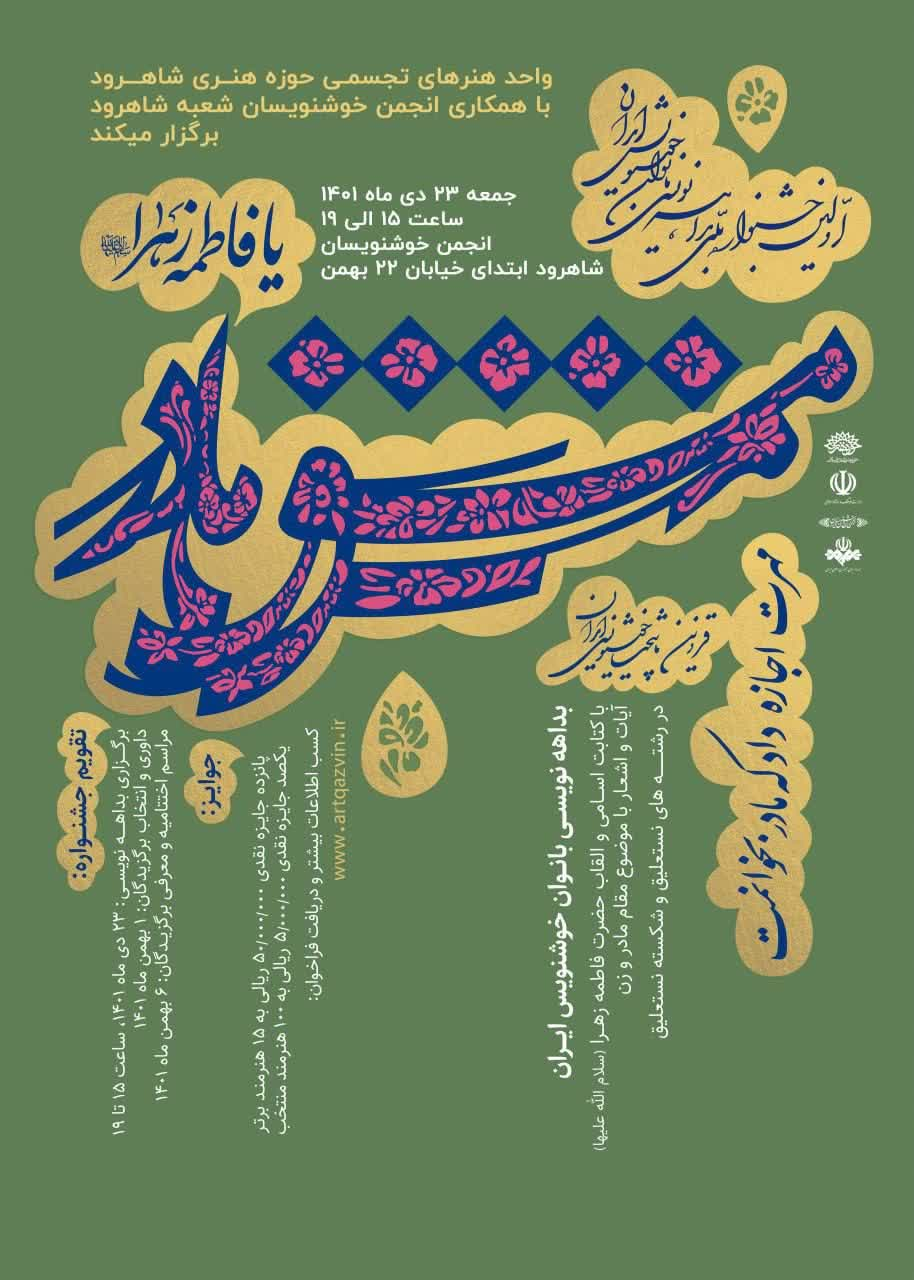 واحد هنرهای تجسمی حوزه هنری شاهرود
با همکاری انجمن خوشنویسان شعبه شاهرود
برگزار میکند
جمعه ۲۳ دی ماه ۱۴۰۱
ساعت ۱۵ الی ۱۹
انجمن خوشنویسان
شاهرود ابتدای خیابان ۲۲ بهمن
اولین جشنواره ملی
بانوان خوشنویس ایران
یا فاطمه زهرا
مادر
قزوین پایتخت خوشنویسی ایران
مهرت اجازه داد که مادر بخوانمت
بداهه نویسی بانوان خوشنویس ایران
با کتابت اسامی و القاب حضرت فاطمه زهرا (سلام الله علیها)
آیات و اشعار با موضوع مقام مادر و زن
در رشته های نستعلیق و شکسته نستعلیق
جوایز:
پانزده جایزه نقدی ۵۰/۰۰۰/۰۰۰ ریالی به ۱۵ هنرمند برتر
یکصد جایزه نقدی ۵/۰۰۰/۰۰۰ ریالی به ۱۰۰ هنرمند منتخب
کسب اطلاعات بیشتر و دریافت فراخوان:
www.artqazvin.ir
تقویم جشنواره:
برگزاری بداهه نویسی: ۲۳ دی ماه ۱۴۰۱، ساعت ۱۵ تا ۱۹
داوری و انتخاب برگزیدگان: ۱ بهمن ماه ۱۴۰۱
مراسم اختتامیه و معرفی برگزیدگان: ۶ بهمن ماه ۱۴۰۱